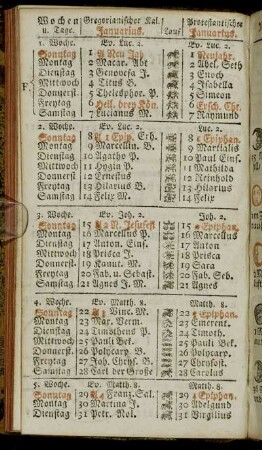 Wochen Gregorianischer Kal. Protestantischer
u. Tage. Januarius. Lauf Januarius.
1. Woche. Ev. Luc. 2. Ev. Luc. 2.
Sonntag 1 A Neu Jah 1 Neujahr.
Montag 2 Macar. Abt 2 Abel, Seth
Dienstag 3 Genovefa J. 3 Enoch
Mittwoch 4 Titus B. 4 Isabella
Donnerst. 5 Thelesphor. P. 5 Simeon
Freytag 6 Heil. drey Kön. 6 Ersch. Chr.
Samstag 7 Lucianus M. 7 Raymund
2. Woche. Ev. Luc. 2. Luc. 2.
Sonntag 8 A 1 Epip. Erh. 8 1 Epiphan.
Montag 9 Marcellin. B. 9 Martialis
Dienstag 10 Agatho P. 10 Paul Eins.
Mittwoch 11 Hygin P. 11 Mathilda
Donnerst. 12 Ernestus 12 Reinhold
Freytag 13 Hilarius B. 13 Hilarius
Samstag 14 Felix M. 14 Felix
3. Woche. Ev. Joh. 2. Joh. 2.
Sonntag 15 A 2 N. Jesufest 15 2 Epiphan.
Montag 16 Marcellus P. 16 Marcellus
Dienstag 17 Anton. Eins. 17 Anton
Mittwoch 18 Prisca J. 18 Prisca
Donnerst. 19 Kanut. M. 19 Sara
Freytag 20 Fab. u. Sebast. 20 Fab. Seb.
Samstag 21 Agnes J. M. 21 Agnes
4. Woche. Ev. Matth. 8. Matth. 8.
Sonntag 22 A 3 Vinc. M. 22 3 Epiphan.
Montag 23 Mar. Verm. 23 Emerent.
Dienstag 24 Timotheus P. 24 Timoth.
Mittwoch 25 Pauli Bek. 25 Pauli Bek.
Donnerst. 26 Polycarp. B. 26 Polycarp.
Freytag 27 Joh. Chrys. B. 27 Chrysost.
Samstag 28 Carl der Große 28 Carolus
5. Woche. Ev. Matth. 8. Matth. 8.
Sonntag 29 A 4 Franz. Sal. 29 4 Epiphan.
Montag 30 Martina J. 30 Adelgund
Dienstag 31 Petr. Nol. 31 Virgilius